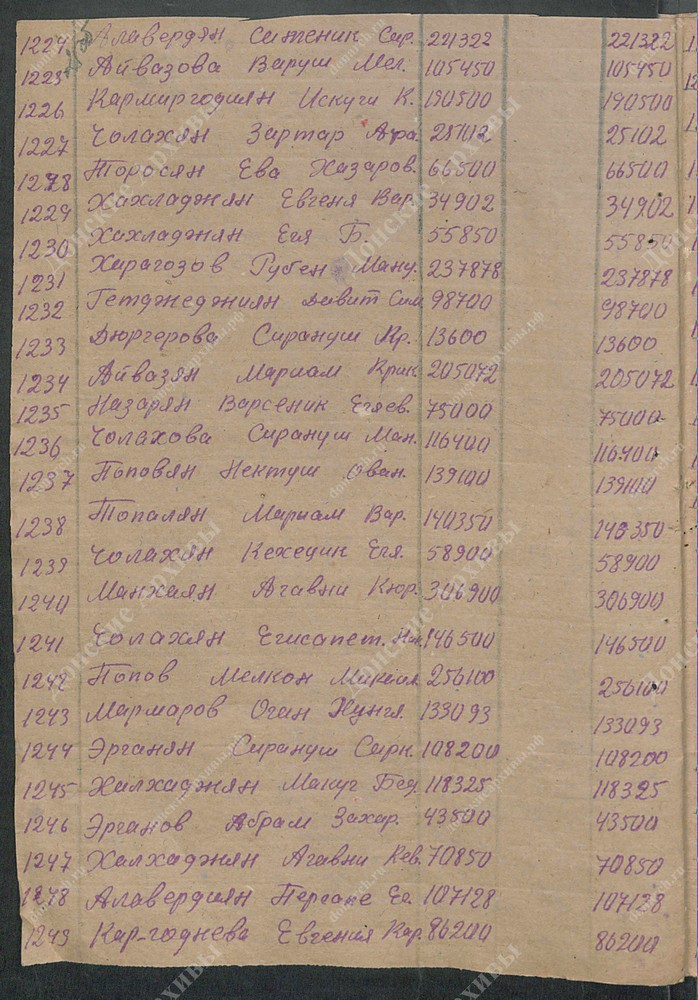 1224 Алавердян Ситеник Сар. 221322 221322
1225 Айвазова Варуш Мел. 105450 105450
1226 Кармиргодиян Искуги К. 190500 190500
1227 Чолахян Зартар Ара. 25102 25102
1228 Торосян Ева Хазаров. 66500 66500
1229 Хахладжян Евгеня Вар. 34902 34902
1230 Хахладжян Егя Б. 55850 55850
1231 Харагозов Рубен Ману. 237878 237878
1232 Гетджеджиян Давит Сим 98700 98700
1233 Дюргерова Сирануш Кр. 13600 13600
1234 Айвазян Мариам Крик. 205072 205072
1235 Назарян Варсеник Егяев. 75000 75000
1236 Чолахова Сирануш Ман. 116400 116400
1237 Поповян Нектуш Ован. 139100 139100
1238 Топалян Мариам Вар. 140350 140350
1239 Чолахян Кехецик Егя. 58900 58900
1240 Манхаян Агавни Кюр. 306900 306900
1241 Чолахян Егисапет. 146500 146500
1242 Попов Мелкон Микаил. 256100 256100
1243 Мармаров Оган Хунгя. 133093 133093
1244 Эрганян Сирануш Сарк. 108200 108200
1245 Халхаджян Макуг Бед. 118325 118325
1246 Эрганов Абрам Захар. 43500 43500
1247 Халхаджян Агавни Кев. 70850 70850
1248 Алавердиян Пергапе Ег. 107128 107128
1249 Кар-годнева Евгения Кар 86200 86200